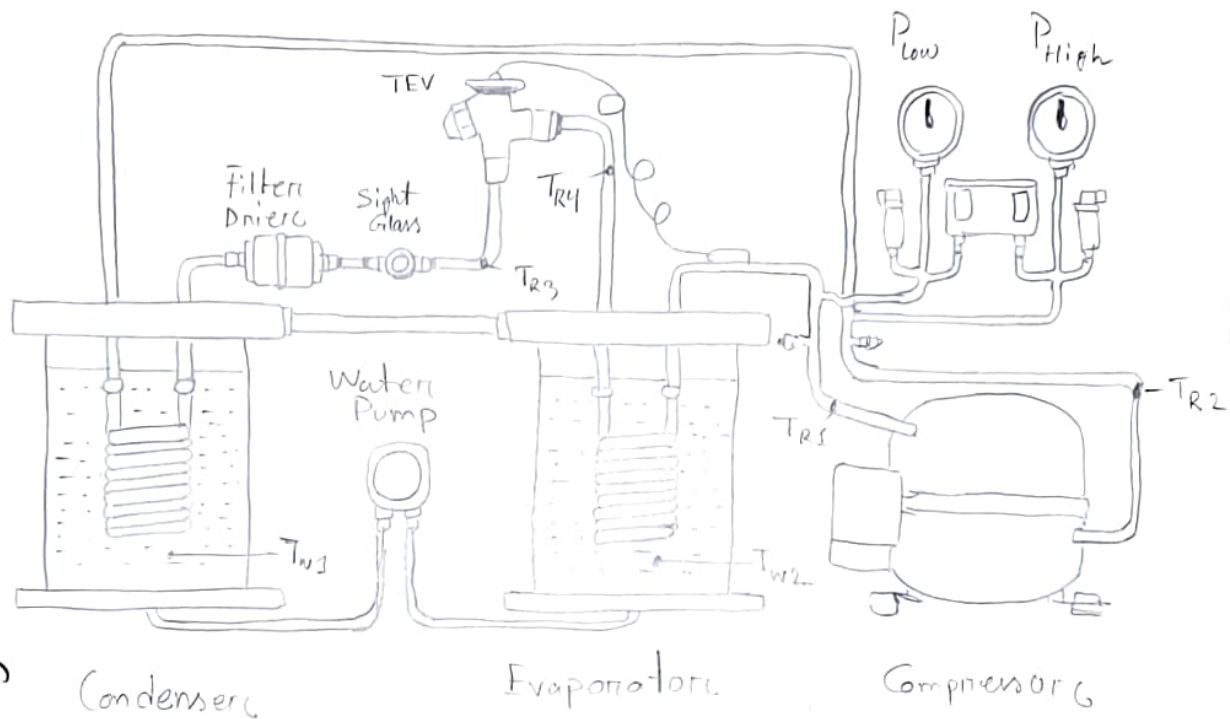 P Low
P High
TEV
Filter
Drier
Sight
Glass
TR4
TR3
Water
Pump
TR2
TR1
TW1
TW2
Condenser
Evaporator
Compressor